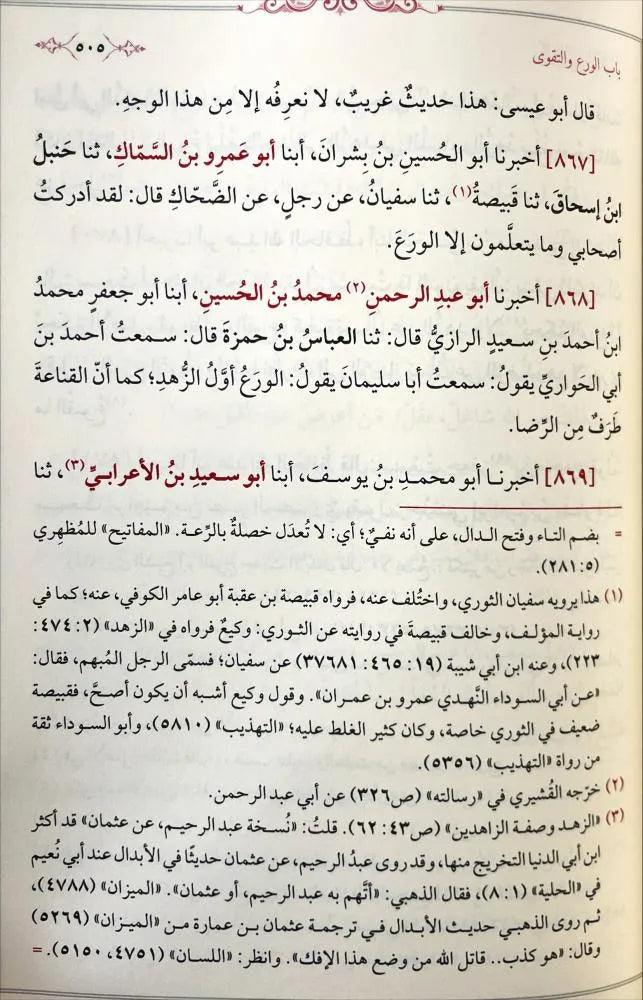 باب الورع والتقوى
٥٠٥
قال أبو عيسى: هذا حديثٌ غريبٌ، لا نعرِفُه إلا مِن هذا الوجهِ.
[٨٦٧] أخبرنا أبو الحُسينِ بنُ بِشرانَ، أبنا أبو عَمرِو بنُ السَّمّاكِ، ثنا حَنبلُ
ابنُ إسحاقَ، ثنا قَبيصةُ(١)، ثنا سفيانُ، عن رجلٍ، عن الضَّحّاكِ قال: لقد أدركتُ
أصحابي وما يتعلَّمون إلا الورَعَ.
[٨٦٨] أخبرنا أبو عبد الرحمنِ(٢) محمدُ بنُ الحُسينِ، أبنا أبو جعفرٍ محمدُ
ابنُ أحمدَ بنِ سعيدٍ الرازيُّ قال: ثنا العباسُ بنُ حمزةَ قال: سمعتُ أحمدَ بنَ
أبي الحَواريِّ يقولُ: سمعتُ أبا سليمانَ يقولُ: الورَعُ أوَّلُ الزُّهدِ؛ كما أنّ القناعةَ
طَرَفٌ مِن الرِّضا.
[٨٦٩] أخبرنا أبو محمدِ بنُ يوسفَ، أبنا أبو سعيدِ بنُ الأعرابيِّ(٣)، ثنا
= بضم التاء وفتح الدال، على أنه نفيٌ؛ أي: لا تُعدَل خصلةٌ بالرِّعة. «المفاتيح» للمُظهِري
(٥: ٢٨١).
(١) هذا يرويه سفيان الثوري، واختُلف عنه، فرواه قبيصة بن عقبة أبو عامر الكوفي، عنه؛ كما في
رواية المؤلف، وخالف قبيصةَ في روايته عن الثوري: وكيعٌ فرواه في «الزهد» (٢: ٤٧٤:
٢٢٣)، وعنه ابن أبي شيبة (١٩: ٤٦٥: ٣٧٦٨١) عن سفيان؛ فسمّى الرجل المُبهم، فقال:
«عن أبي السوداء النَّهدي عمرو بن عمران». وقول وكيع أشبه أن يكون أصحَّ، فقبيصة
ضعيف في الثوري خاصة، وكان كثير الغلط عليه؛ «التهذيب» (٥٨١٠)، وأبو السوداء ثقة
من رواة «التهذيب» (٥٣٥٦).
(٢) خرّجه القُشيري في «رسالته» (ص٣٢٦) عن أبي عبد الرحمن.
(٣) «الزهد وصفة الزاهدين» (ص٤٣: ٦٢). قلتُ: «نُسخة عبد الرحيم، عن عثمان» قد أكثر
ابن أبي الدنيا التخريج منها، وقد روى عبدُ الرحيم، عن عثمان حديثًا في الأبدال عند أبي نُعيم
في «الحلية» (١: ٨)، فقال الذهبي: «أتَّهم به عبد الرحيم، أو عثمان». «الميزان» (٤٧٨٨)،
ثم روى الذهبي حديث الأبدال في ترجمة عثمان بن عمارة من «الميزان» (٥٢٦٩)
وقال: «هو كذب.. قاتل الله من وضع هذا الإفك». وانظر: «اللسان» (٤٧٥١، ٥١٥٠). =